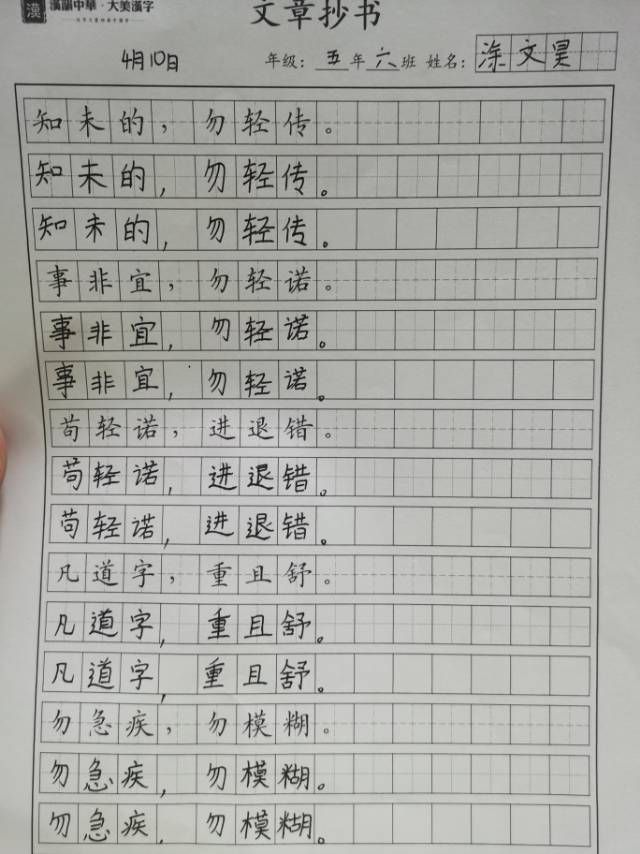 漢韻中華·大美漢字
文章抄书
4月10日 年级：五年六班 姓名：涂文昊
知未的，勿轻传。
知未的，勿轻传。
知未的，勿轻传。
事非宜，勿轻诺。
事非宜，勿轻诺。
事非宜，勿轻诺。
苟轻诺，进退错。
苟轻诺，进退错。
苟轻诺，进退错。
凡道字，重且舒。
凡道字，重且舒。
凡道字，重且舒。
勿急疾，勿模糊。
勿急疾，勿模糊。
勿急疾，勿模糊。